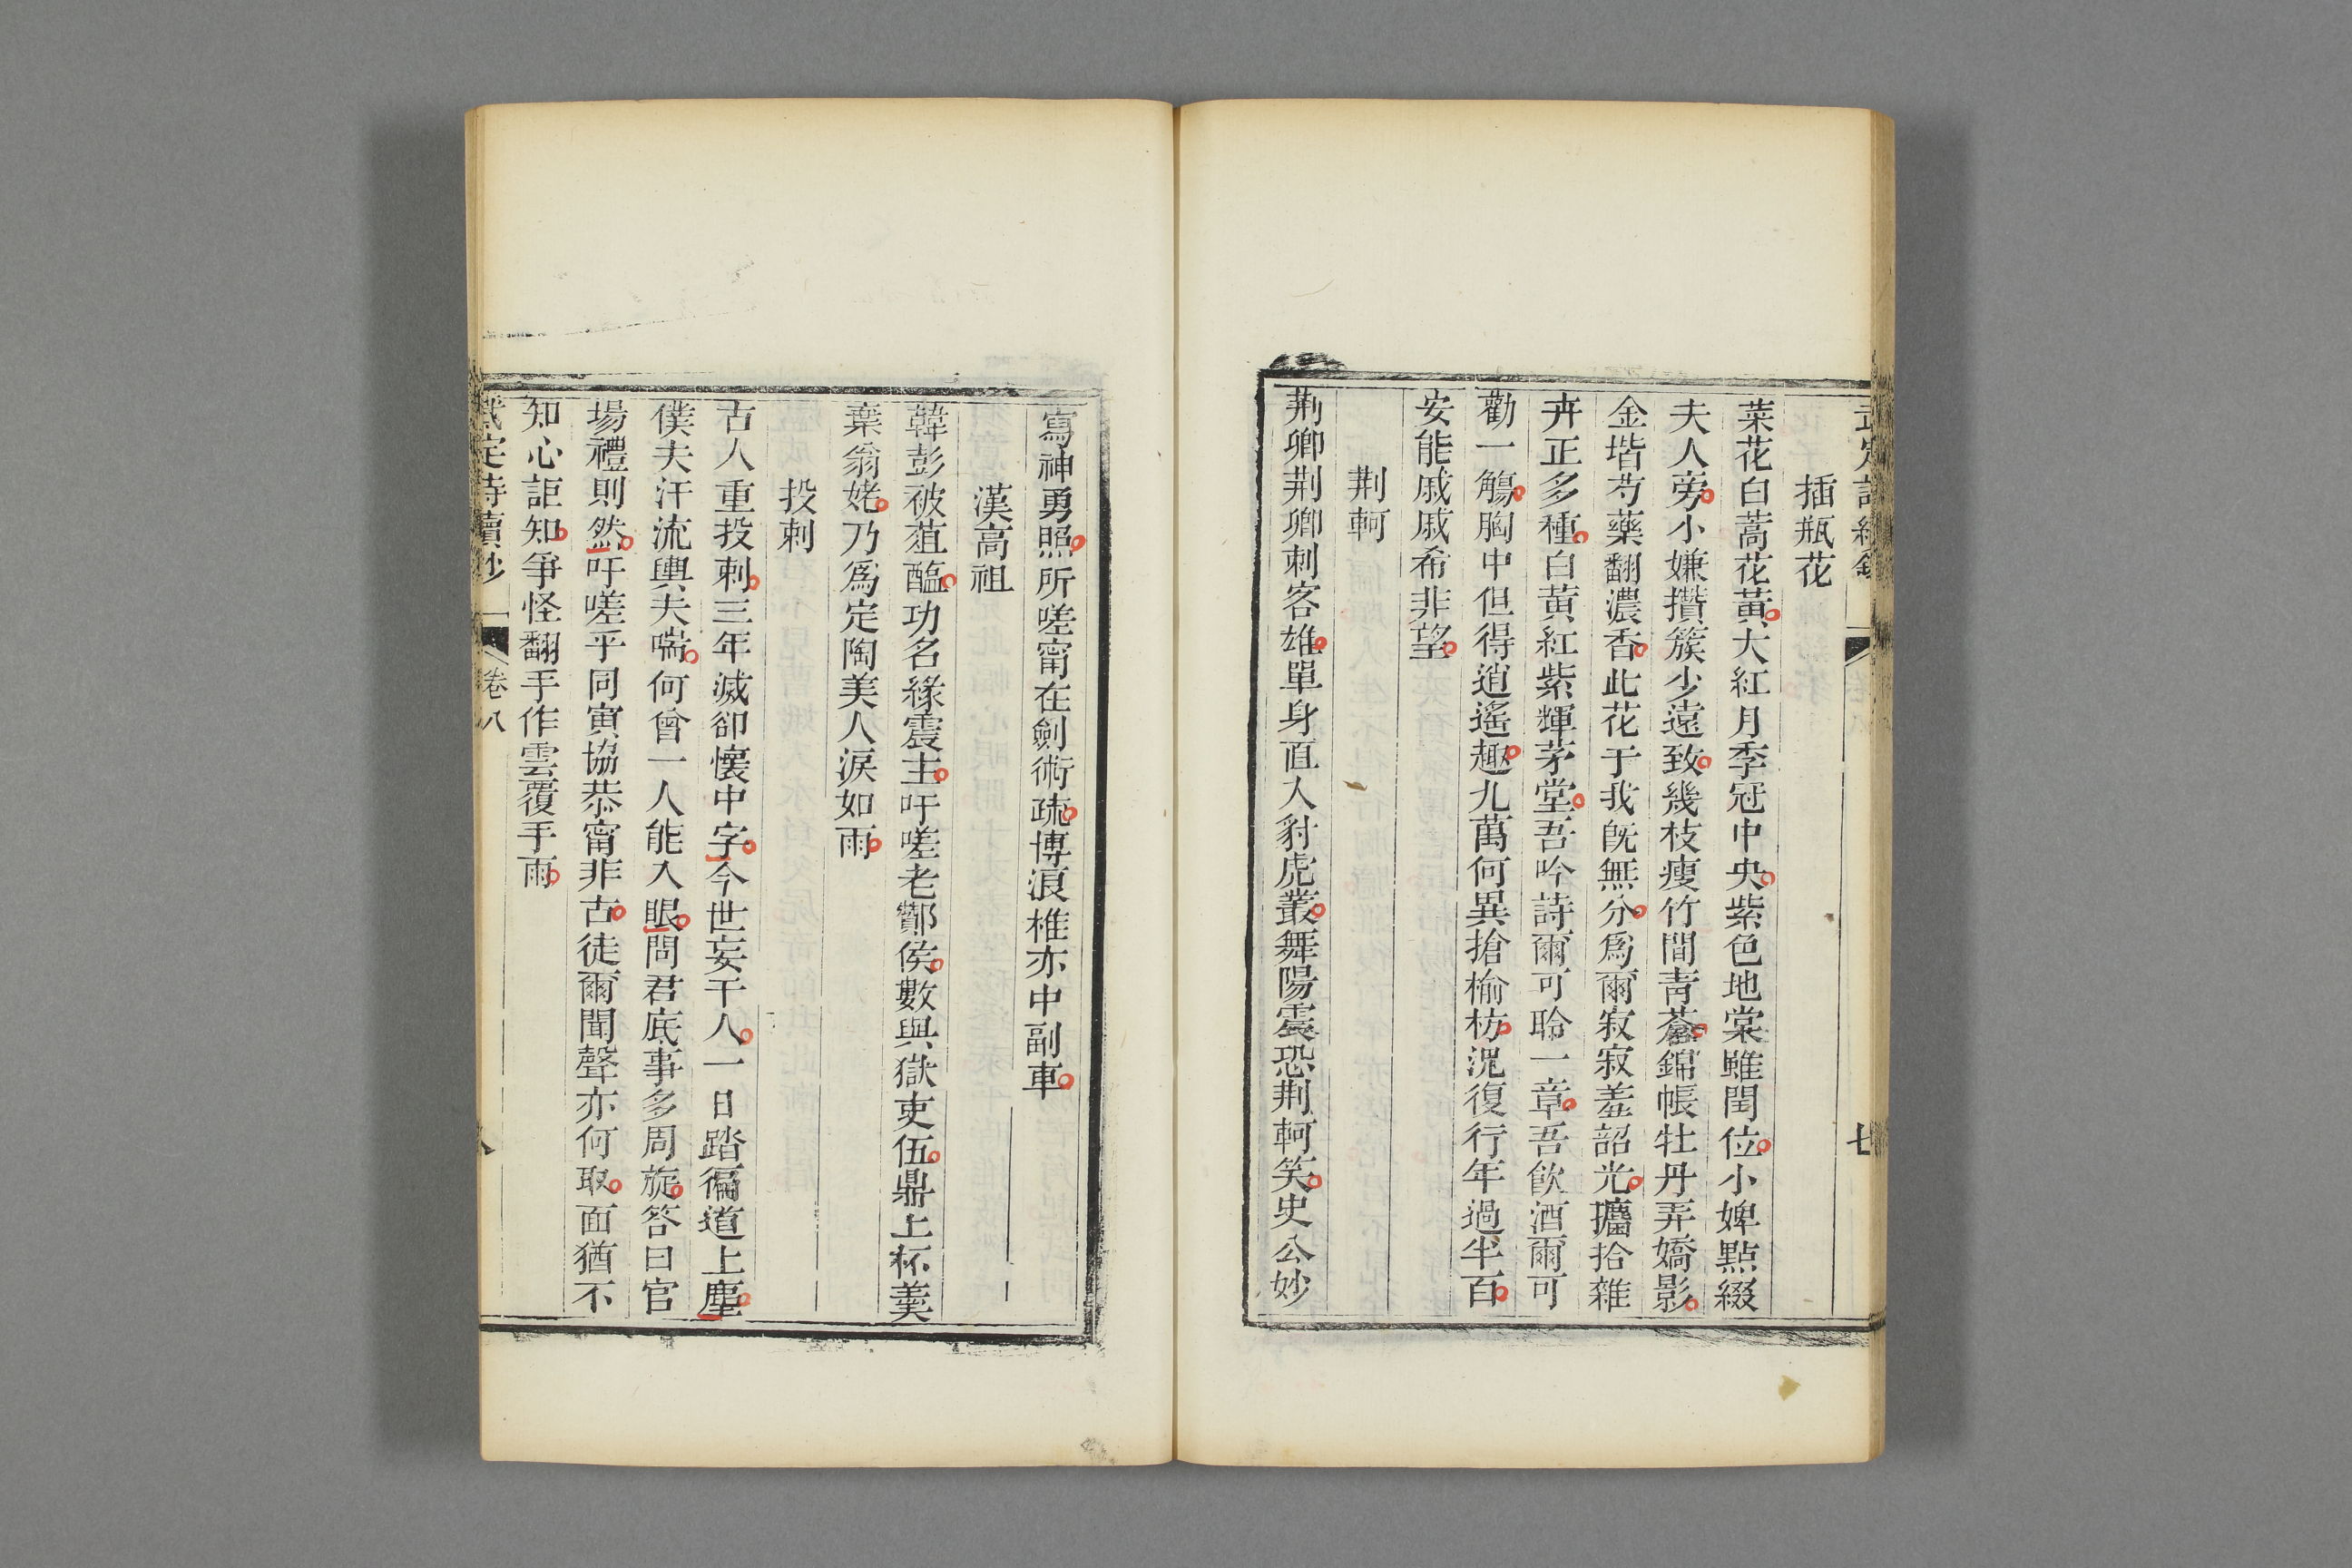 武定詩續鈔
七
插瓶花
菜花白蒿花黃大紅月季冠中央紫色地棠雖閏位小婢點綴
夫人旁小嫌攢簇少遠致幾枝瘦竹間青蒼錦帳牡丹弄嬌影
金堦芍藥翻濃香此花于我旣無分爲爾寂寂羞韶光攟拾雜
卉正多種白黃紅紫輝茅堂吾吟詩爾可聆一章吾飲酒爾可
勸一觴胸中但得逍遙趣九萬何異搶榆枋況復行年過半百
安能戚戚希非望
荆軻
荆卿荆卿刺客雄單身直入豺虎叢舞陽震恐荆軻笑史公妙
寫神勇照所嗟甯在劍術疏博浪椎亦中副車
漢高祖
韓彭被葅醢功名緣震主吁嗟老酇侯數與獄吏伍鼎上杯羹
棄翁姥乃爲定陶美人淚如雨
投刺
古人重投刺三年滅卻懷中字今世妄干人一日踏徧道上塵
僕夫汗流輿夫喘何曾一人能入眼問君底事多周旋答曰官
場禮則然吁嗟乎同寅協恭甯非古徒爾聞聲亦何取面猶不
知心詎知爭怪翻手作雲覆手雨
武定詩續鈔
卷八
八